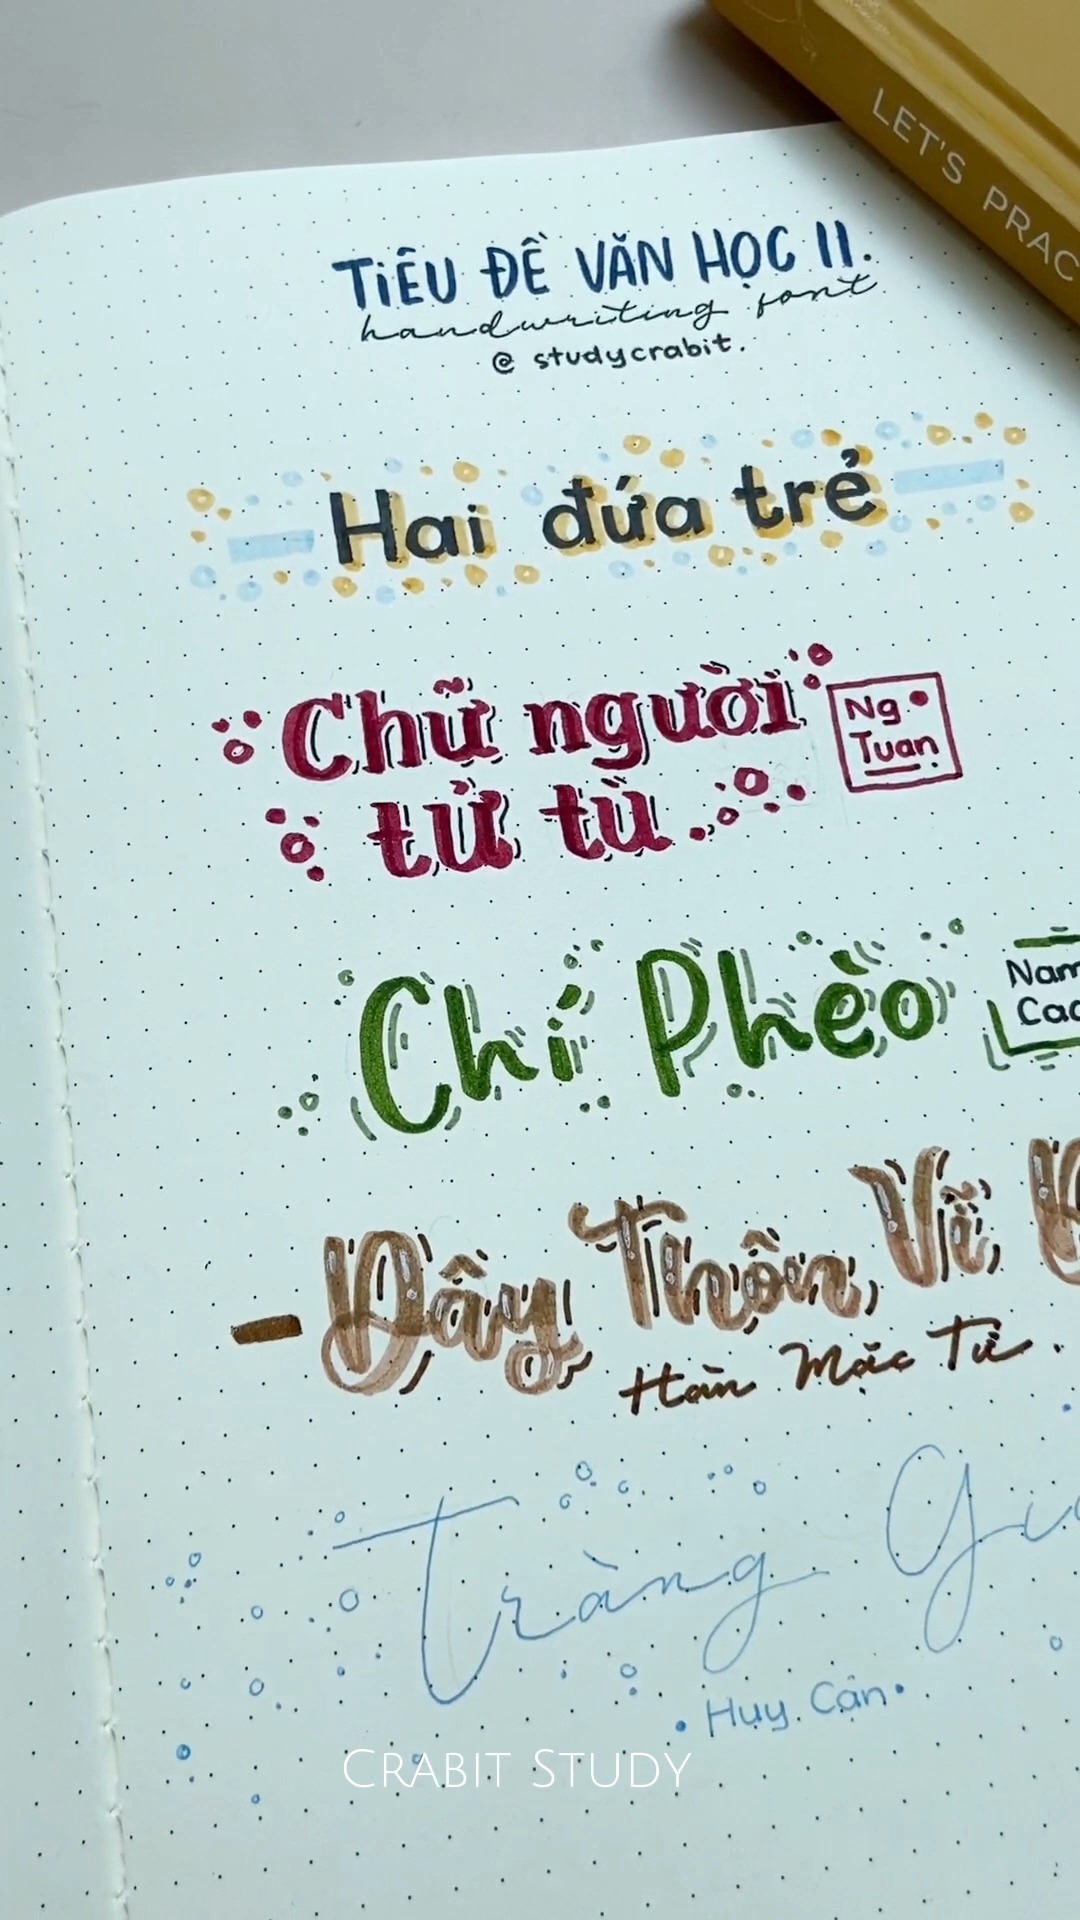 LET'S PRAC
TIÊU ĐỀ VĂN HỌC 11.
handwriting font
@ studycrabit.
Hai đứa trẻ
Chữ người
tử tù
Ng
Tuan
Chí Phèo
Nam
Cao
Dây Thôn Vĩ
Hàn Mặc Tử.
Tràng Gi
Huy Cận
CRABIT STUDY